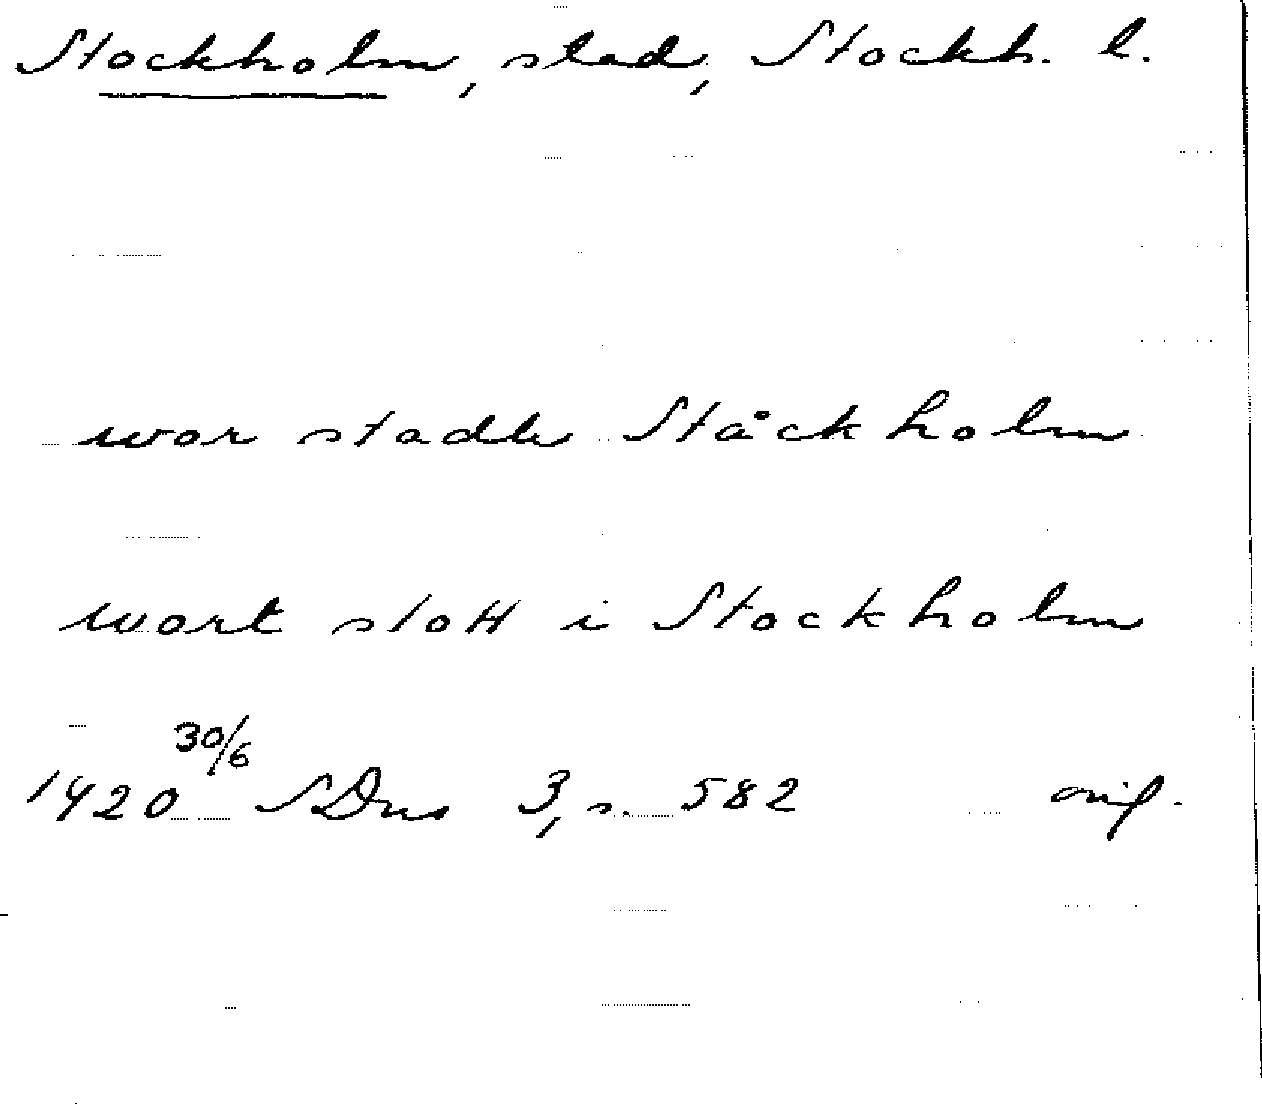 Stockholm, stad, Stockh. l.
wor stadh Ståckholm
wort slott i Stockholm
1420 30/6 SDns 3, s. 582 orig.